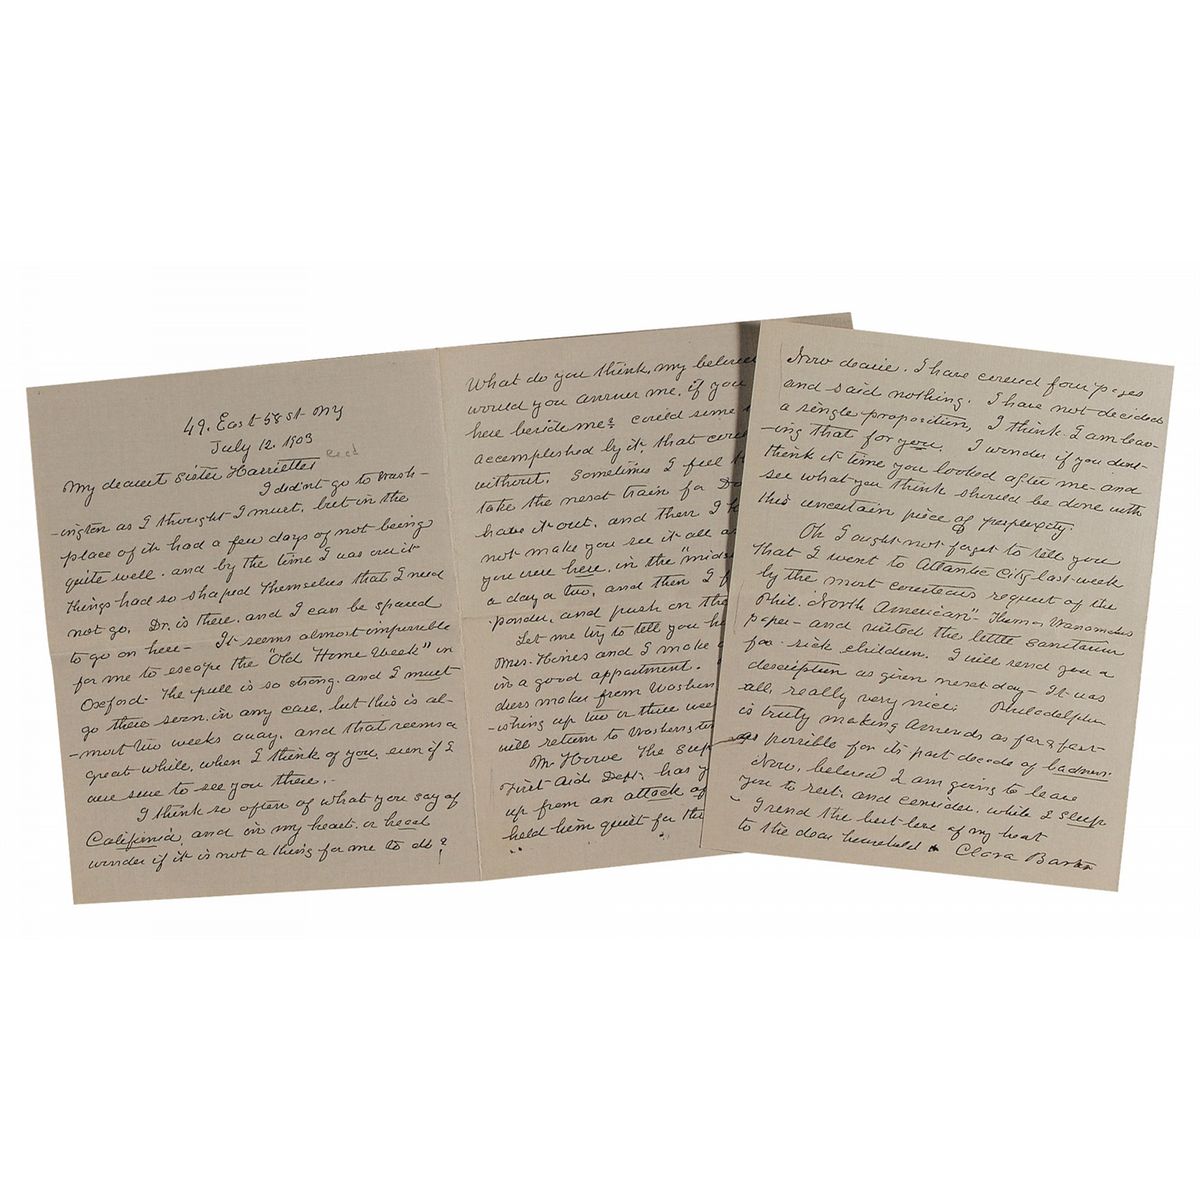 49. East 58 st NY
July 12. 1903
My dearest Sister Harriette
I didn't go to Wash-
-ington as I thought I must, but in the
place of it had a few days of not being
quite well. and by the time I was over it
things had so shaped themselves that I need
not go. Dr. is there, and I can be spared
to go on here - It seems almost impossible
for me to escape the "Old Home Week" in
Oxford. The pull is so strong. and I must
go there soon, in any case, but this is al-
-most two weeks away. and that seems a
great while, when I think of you, even if I
were sure to see you there.
I think so often of what you say of
California, and in my heart, or head
wonder if it is not a thing for me to do?
What do you think, my beloved
would you answer me, if you
here beside me? could some
accomplished by it, that
without. Sometimes I feel
take the next train for
have it out, and then I
not make you see it all
you were here, in the "midst
a day or two, and then I
ponder, and push on the
Let me try to tell you
Mrs. Hines and I make
in a good apartment.
dress maker from Washin
-ishing up two or three
will return to Washington
Mr Howe The Sup
First Aid Dept. has
up from an attack of
held him quiet for
Now dearie. I have covered four pages
and said nothing. I have not decided
a single proposition, I think I am leav-
-ing that for you. I wonder if you dont
think it time you looked after me and
see what you think should be done with
this uncertain piece of perplexity.
Oh I ought not forget to tell you
that I went to Atlantic City last week
by the most courteous request of the
Phil. North American" Wanamakers
paper - and visited the little sanitarium
for sick children. I will send you a
description as given next day - It was
all, really very nice. Philadelphia
is truly making amends as far & fast
as possible for its past decade of badness.
Now, beloved I am going to leave
you to rest, and consider, while I sleep
I send the best love of my heart
to the dear household Clara Barton